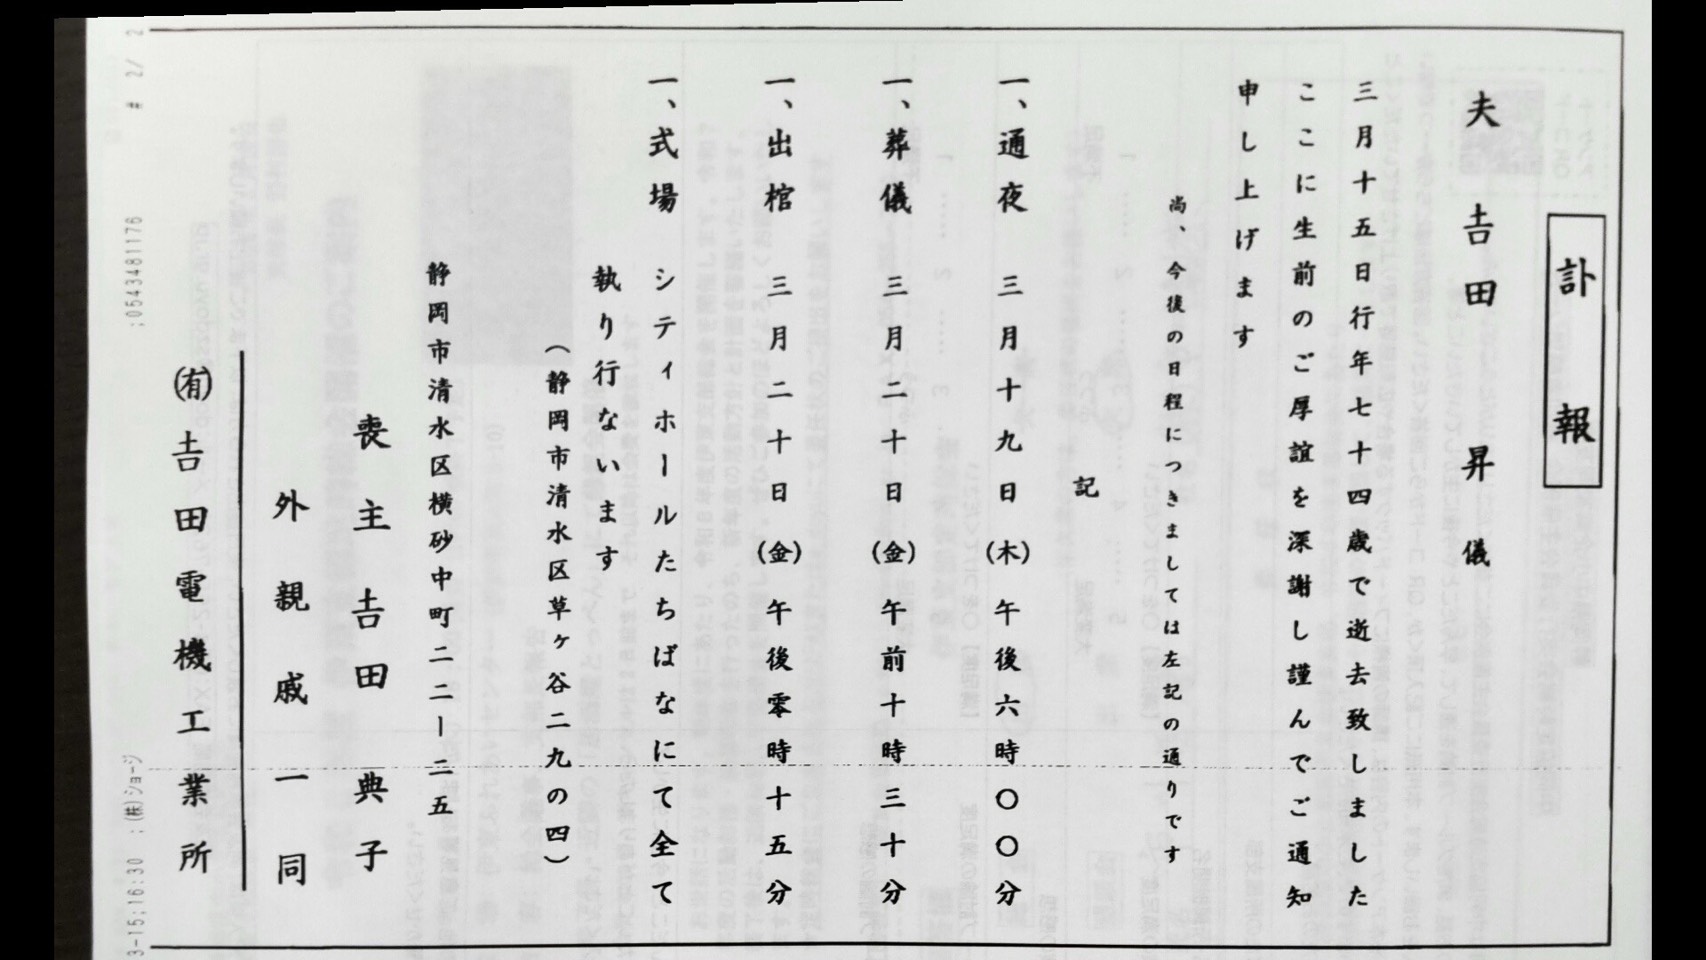 訃報
夫 𠮷田 昇 儀
三月十五日行年七十四歳で逝去致しました
ここに生前のご厚誼を深謝し謹んでご通知
申し上げます
尚、今後の日程につきましては左記の通りです
記
一、通夜 三月十九日(木)午後六時〇〇分
一、葬儀 三月二十日(金)午前十時三十分
一、出棺 三月二十日(金)午後零時十五分
一、式場 シティホールたちばなにて全て
執り行ないます
(静岡市清水区草ヶ谷二九の四)
静岡市清水区横砂中町二二ー二五
喪主 𠮷田 典子
外 親戚一同
㈲𠮷田電機工業所
3-15;16:30 ;(株)ショージ ;0543481176 # 2/ 2